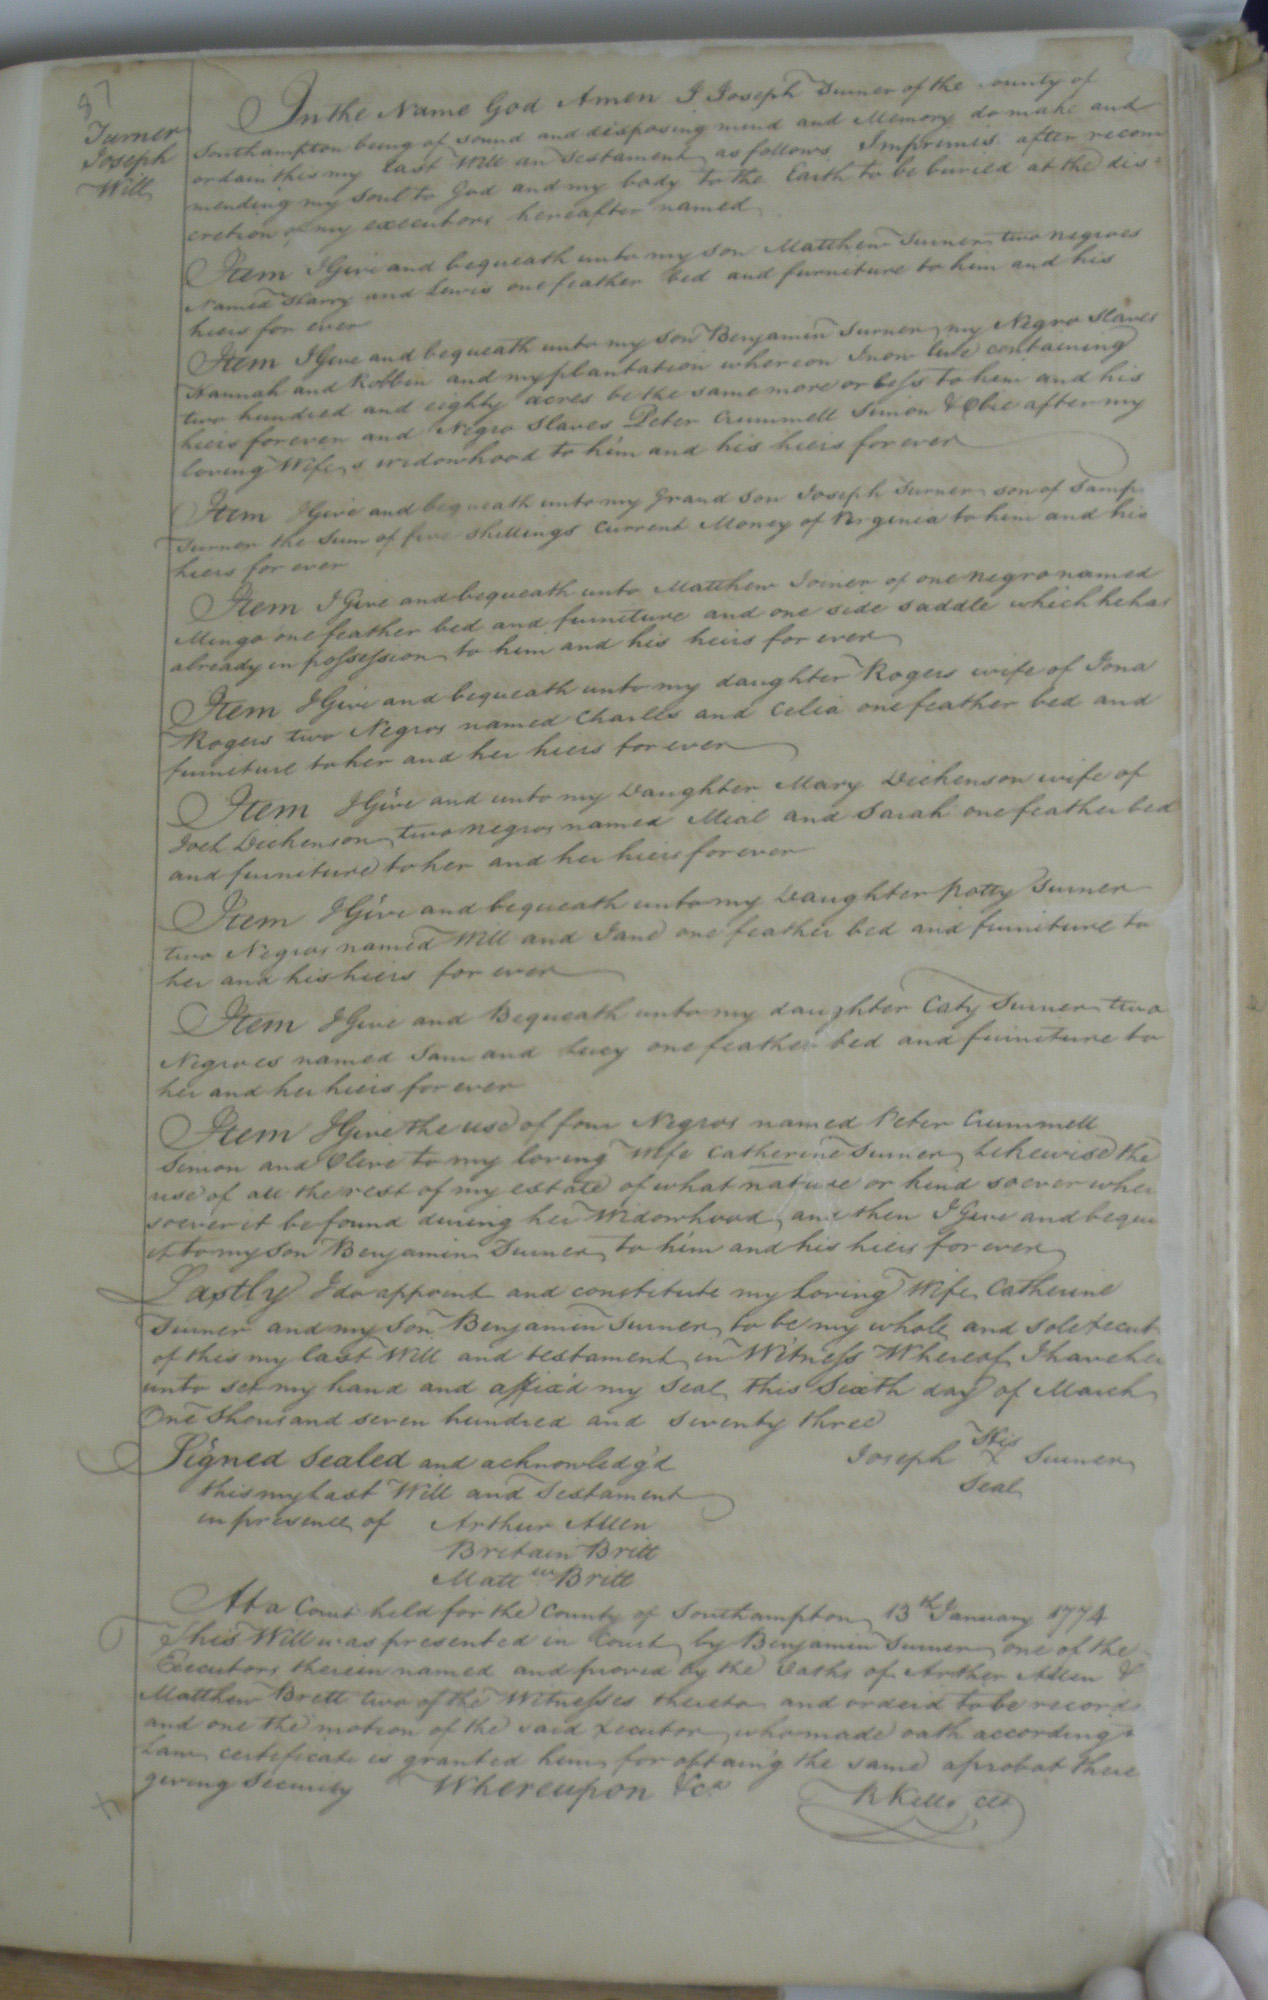 87
Turner
Joseph
Will
In the Name God Amen I Joseph Turner of the county of
Southampton being of sound and disposing mind and Memory do make and
ordain this my last Will an Testament as follows Imprimis after recom
mending my soul to God and my body to the Earth to be buried at the dis=
cretion of my executors hereafter named
Item I Give and bequeath unto my son Matthew Turner two negroes
Named Harry and Lewis one feather bed and furniture to him and his
hiers for ever
Item I Give and bequeath unto my son Benjamin Turner my Negro Slaves
Hannah and Robbin and my plantation whereon I now live containing
two hundred and eighty acres be the same more or less to hem and his
hiers for even and Negro Slaves Peter Crummell Simon & Clie after my
loving Wife,s widowhood to him and his hiers for ever
Item I Give and bequeath unto my Grand Son Joseph Turner son of Samp
Turner the Sum of five shillings Current Money of Virginia to him and his
hiers for ever
Item I Give and bequeath unto Matthew Joiner of one negro named
Mingo one feather bed and furniture and one side saddle which he has
already in possession to him and his heirs for ever
Item I Give and bequeath unto my daughter Rogers wife of Jona
Rogers two Negros named Charlls and Celia one feather bed and
furniture to her and her hiers for ever
Item I Give and unto my Daughter Mary Dickenson wife of
Joel Dickenson two negros named Mial and Sarah one feather bed
and furniture to her and her hiers for ever
Item I Give and bequeath unto my Daughter Patty Turner
two Negros named Will and Jane one feather bed and furniture to
her and his hiers for ever
Item I Give and Bequeath unto my daughter Caty Turner two
Negroes named Sam and Lucy one feather bed and furniture to
her and her hiers for ever
Item I Give the use of four Negros named Peter Crummell
Simon and Olive to my loving Wife Catherine Turner Likewise the
use of all the rest of my estate of what nature or kind soever wher
soever it be found during her Widowhood, and then I Give and beque
it to my Son Benjamin Turner to him and his hiers for ever
Lastly I do appoint and constitute my Loving Wife Catherine
Turner and my Son Benjamin Turner to be my whole and sole Execut
of this my last Will and testament in Witness Whereof I have her
unto set my hand and affix'd my Seal this Sixth day of March
One thousand seven hundred and Seventy three
Signed Sealed and acknowledg'd
this my Last Will and Testament
in presence of Arthur Allen
Britain Britt
Mattw Britt
His
Joseph X Turner
Seal
At a Court held for the County of Southampton 13th January 1774
This Will was presented in Court by Benjamin Turner one of the
Executors therein named and proved by the Oaths of Arther Allen &
Matthew Brett two of the Witnesses thereto and order'd to be record
and one the motion of the said Executor who made oath according to
Law certificate is granted him for optaing the same aprobat there
giving Security Whereupon &ca
R Kello Clk